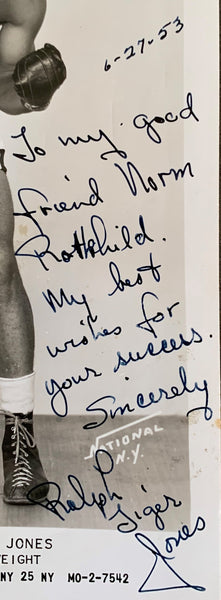 6-27-53
To my good
friend Norm
Rothchild.
My best
wishes for
your success.
Sincerely
NATIONAL
N.Y.
Ralph
Tiger
Jones
JONES
WEIGHT
NY 25 NY MO-2-7542